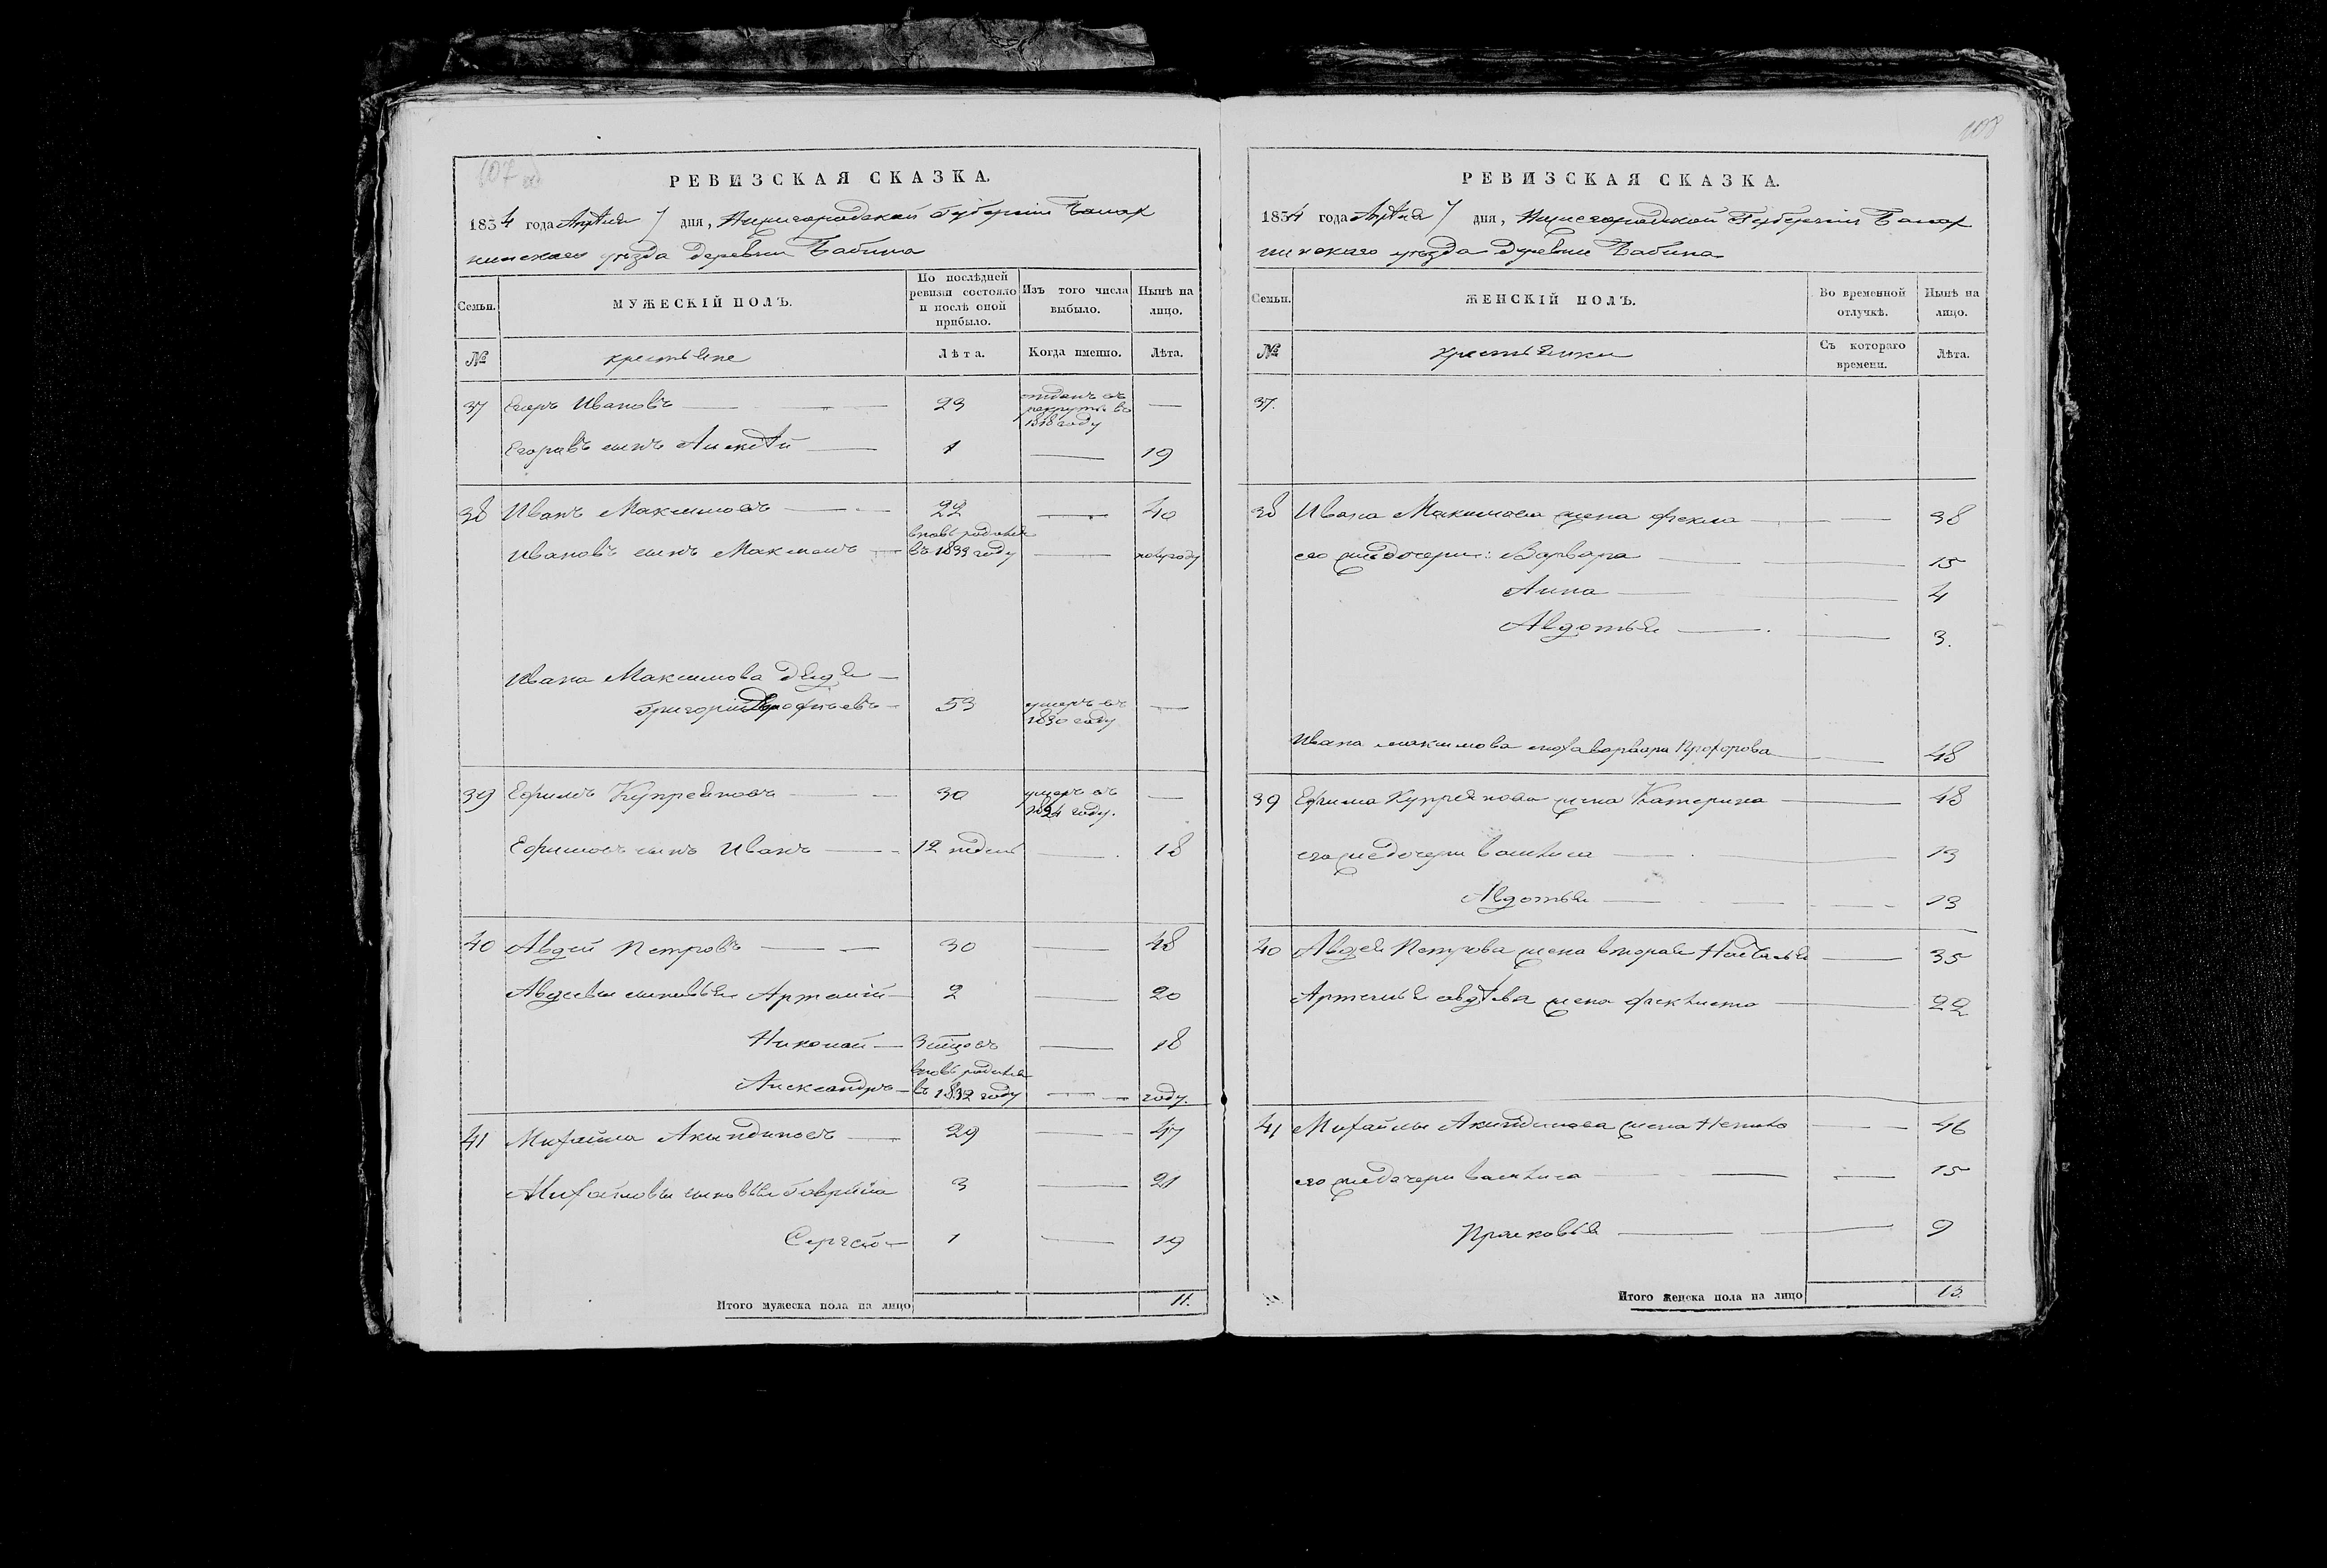 107 об
РЕВИЗСКАЯ СКАЗКА.
1834 года Апреля 7 дня, Нижегородской Губернии Балах
нинскаго уезда деревни Бабина
Семьи.
МУЖЕСКІЙ ПОЛЪ.
По послѣдней
ревизіи состояло
и послѣ оной
прибыло.
Изъ того числа
выбыло.
Нынѣ на
лицо.
№
крестьяне
Лѣта.
Когда именно.
Лѣта.
37 Егоръ Ивановъ 23 отданъ въ
рекруты въ
1818 году
Егоровъ сынъ Алексей 1 19
38 Иванъ Максимовъ 22 40
Ивановъ сынъ Максимъ вновь родился
въ 1833 году полугоду
Ивана Максимова дядя
Григорий Дорофеевъ 53 умеръ въ
1830 году
39 Ефимъ Купреяновъ 30 умеръ въ
1824 году.
Ефимовъ сынъ Иванъ 12 недель 18
40 Авдей Петровъ 30 48
Авдеевы сыновья Артемий 2 20
Николай 3 мцовъ 18
Александръ вновь родился
въ 1832 году году.
41 Михайла Акиндиновъ 29 47
Михайловы сыновья Гаврила 3 21
Сергей 1 19
Итого мужеска пола на лицо 11.
108
РЕВИЗСКАЯ СКАЗКА.
1834 года Апреля 7 дня, Нижегородской Губернии Балах
нинскаго уезда деревни Бабина
Семьи.
ЖЕНСКІЙ ПОЛЪ.
Во временной
отлучкѣ.
Нынѣ на
лицо.
№
крестьянки
Съ котораго
времени.
Лѣта.
37.
38 Ивана Максимова жена Фекла 38
его же дочери: Варвара 15
Анна 4
Авдотья 3.
Ивана Максимова Варвара Прохорова 48
39 Ефима Купреянова жена Катерина 48
его же дочери Василиса 13
Авдотья 13
40 Авдея Петрова жена вторая Наталья 35
Артемья Авдеева жена Феклиста 22
41 Михайлы Акиндинова жена 46
его же дочери Василиса 15
Прасковья 9
Итого женска пола на лицо 13.